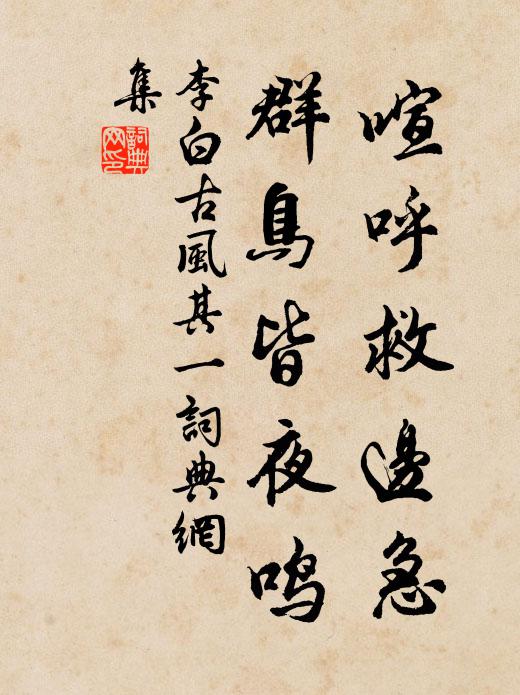 喧呼救邊急
群鳥皆夜鳴
李白古風其一詞典網
集
詞典网印